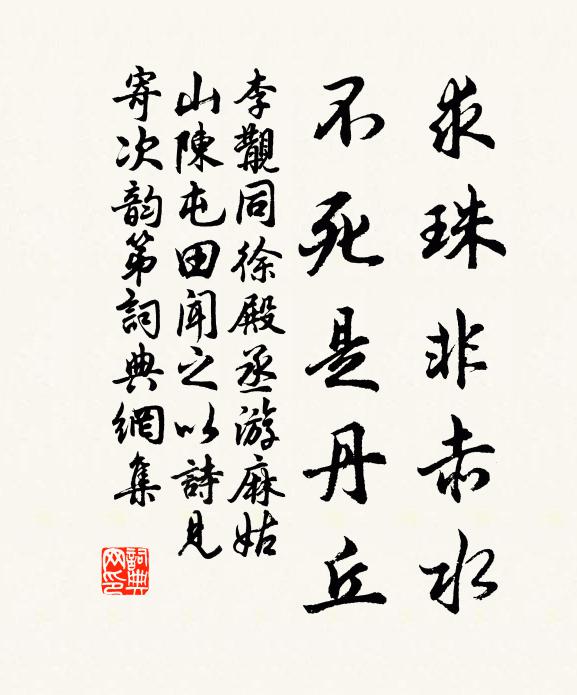 求珠非赤水
不死是丹丘
李覯同徐殿丞游麻姑
山陳屯田聞之以詩見
寄次韵第詞典網集
詞典网印